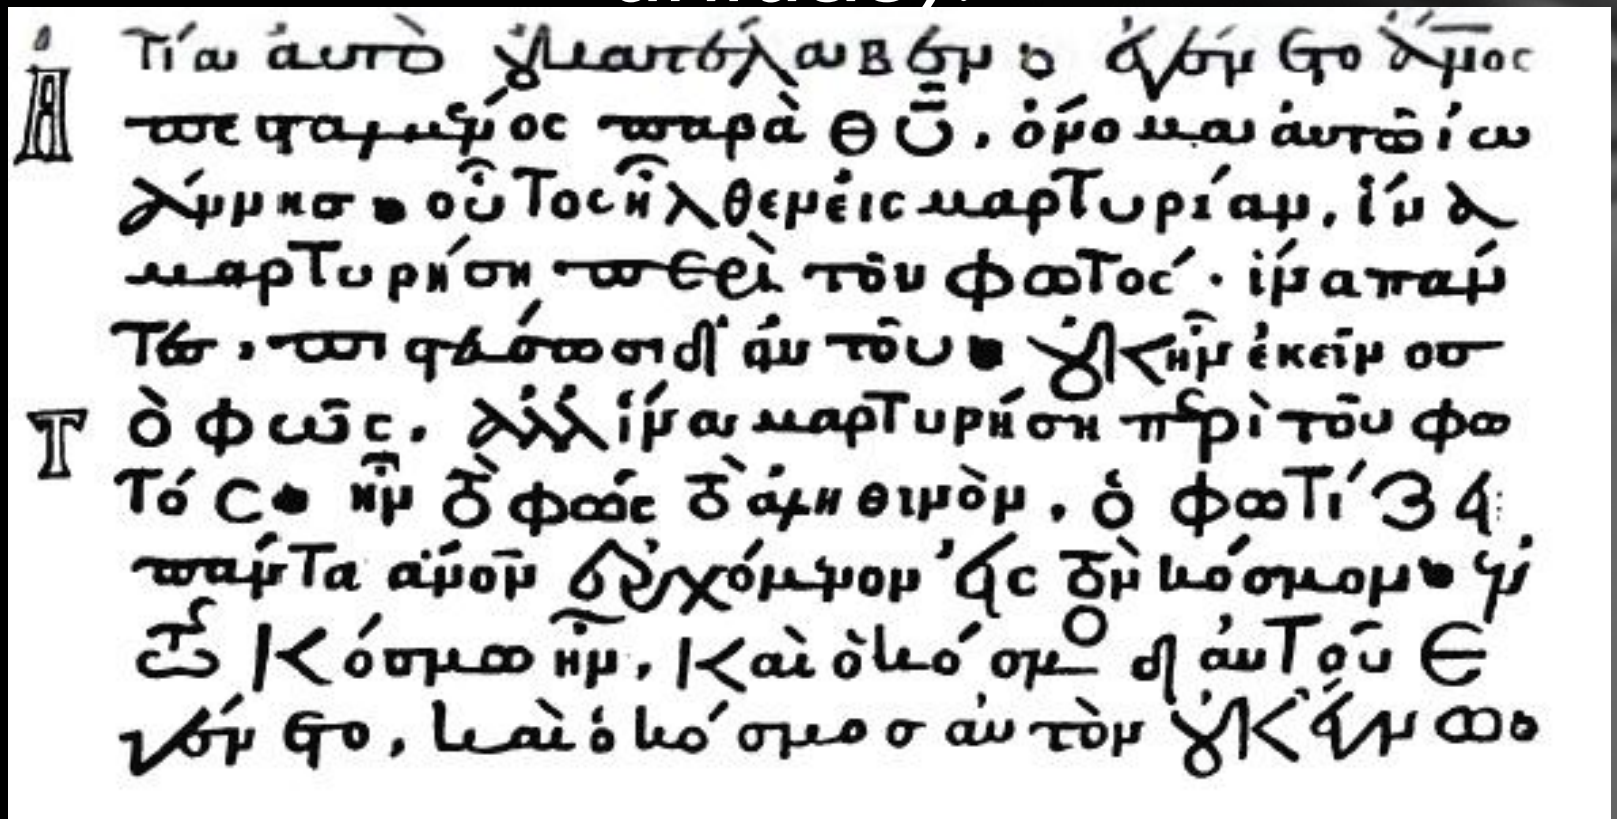 τία αὐτὸ οὐ κατέλαβεν· ἐγένετο ἄν̅ο̅ς
ἀπεσταλμένος παρὰ θ̅υ̅, ὄνομα αὐτῶ ἰω
άννησ· οὗτος ἦλθεν εἰς μαρτυρίαν, ἵνα
μαρτυρήση περὶ τοῦ φωτός· ἵνα πάν
τεσ, πιστεύσωσι δι' αὐτοῦ· οὐκ ἦν ἐκεῖνοσ
τὸ φῶς, ἀλλ' ἵνα μαρτυρήση περὶ τοῦ φω
τός· ἦν τὸ φῶς τὸ ἀληθινὸν, ὃ φωτίζει
πάντα ἄνον ἐρχόμενον εἰς τὸν κόσμον· ἐν
τῶ κόσμω ἦν, καὶ ὁ κόσμος δι' αὐτοῦ ἐ
γένετο, καὶ ὁ κόσμοσ αὐτὸν οὐκ ἔγνω·